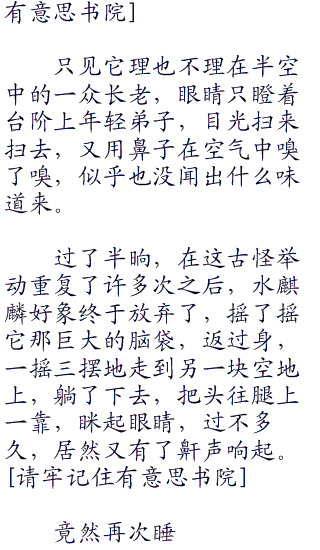 有意思书院]
只见它理也不理在半空
中的一众长老，眼睛只瞪着
台阶上年轻弟子，目光扫来
扫去，又用鼻子在空气中嗅
了嗅，似乎也没闻出什么味
道来。
过了半晌，在这古怪举
动重复了许多次之后，水麒
麟好象终于放弃了，摇了摇
它那巨大的脑袋，返过身，
一摇三摆地走到另一块空地
上，躺了下去，把头往腿上
一靠，眯起眼睛，过不多
久，居然又有了鼾声响起。
[请牢记住有意思书院]
竟然再次睡